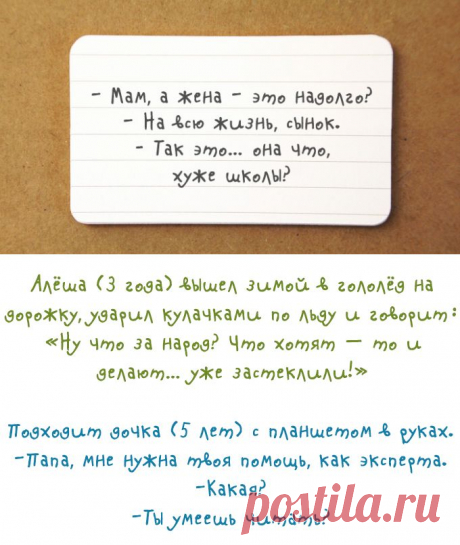 - Мам, а жена - это надолго?
- На всю жизнь, сынок.
- Так это... она что,
хуже школы?
Алёша (3 года) вышел зимой в гололёд на
дорожку, ударил кулачками по льду и говорит:
«Ну что за народ? Что хотят — то и
делают... уже застеклили!»
Подходит дочка (5 лет) с планшетом в руках.
-Папа, мне нужна твоя помощь, как эксперта.
-Какая?
-Ты умеешь читать?
postila.ru